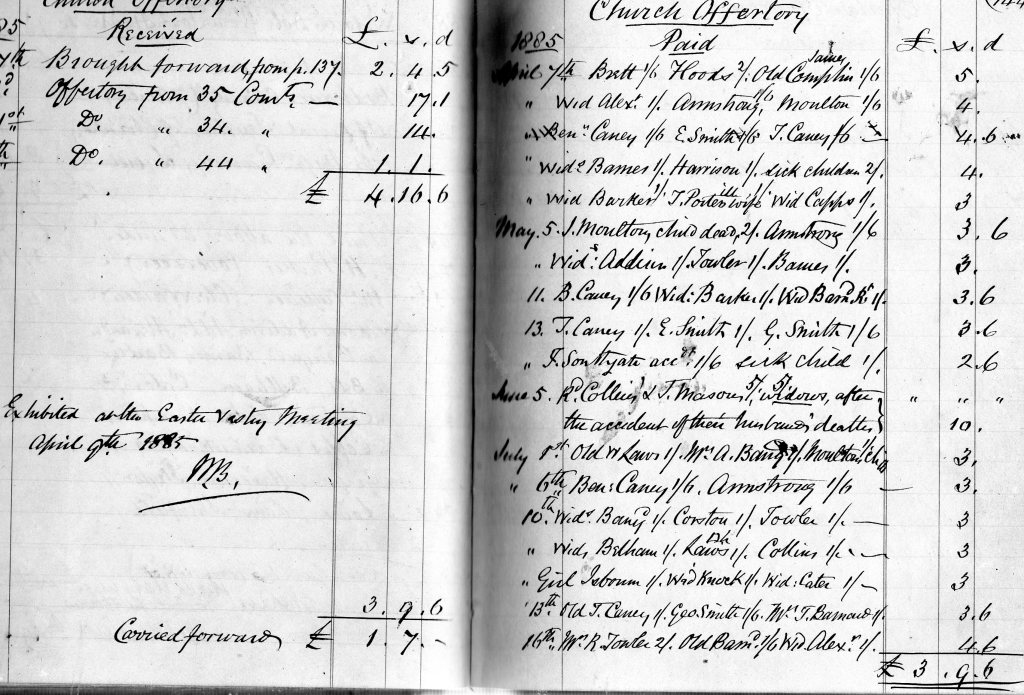 Church Offertory
Received £. s. d
Brought forward from p. 137. 2. 4. 5
Offertory from 35 Court — 17. 1
Do. " 34. " 14.
Do. " 44 " 1. 1.
£ 4. 16. 6
Exhibited at the Easter Vestry Meeting
April 9th 1885
3. 9. 6
Carried forward £ 1. 7. -
Church Offertory
1885 Paid £. s. d
April 7th Brett 1/6 Hoods 2/. Old James Complin 1/6 5.
" Wid Alexr. 1/. Armstrong 1/6 Moulton 1/6 4.
" Benn. Caney 1/6 E. Smith 1/6 T. Caney 1/6 — 4. 6
" Wide Barnes 1/. Harrison 1/. sick children 2/. 4.
" Wid Barker 1/ T. Porter wife 1/ Wid Capps 1/. 3
May. 5. J. Moulton child dead, 2/. Armstrong 1/6 3. 6
" Wids: 1/. Towler 1/. Barnes 1/. 3.
11. B. Caney 1/6 Wid: Barker 1/. Wid 1/. 3. 6
13. T. Caney 1/. E. Smith 1/. G. Smith 1/6 3. 6
" F. Southgate acct. 1/6 sick child 1/. 2. 6
June 5. Rd Collins & T. Mason's 5/. 5/. widows, after " " "
the accident of their husband's deaths 10.
July 1st. Old W Laws 1/. Mrs A. 1/. Moulton's 1/ 3.
" 6th Ben: Caney 1/6. Armstrong 1/6 — 3.
10th Wid. 1/. Corston 1/. Towler 1/. — 3
" Wid, Belham 1/. Laws 1/. Collins 1/. — 3
" Girl Isbourn 1/. Wid Knock 1/. Wid: Cater 1/— 3
13th Old T. Caney 1/. Geo Smith 1/6. Mrs T. Barnard 1/. 3. 6
16th. Mrs R. Towler 2/. Old 1/6 Wid. Alexr. 1/. 4. 6
£ 3. 9. 6